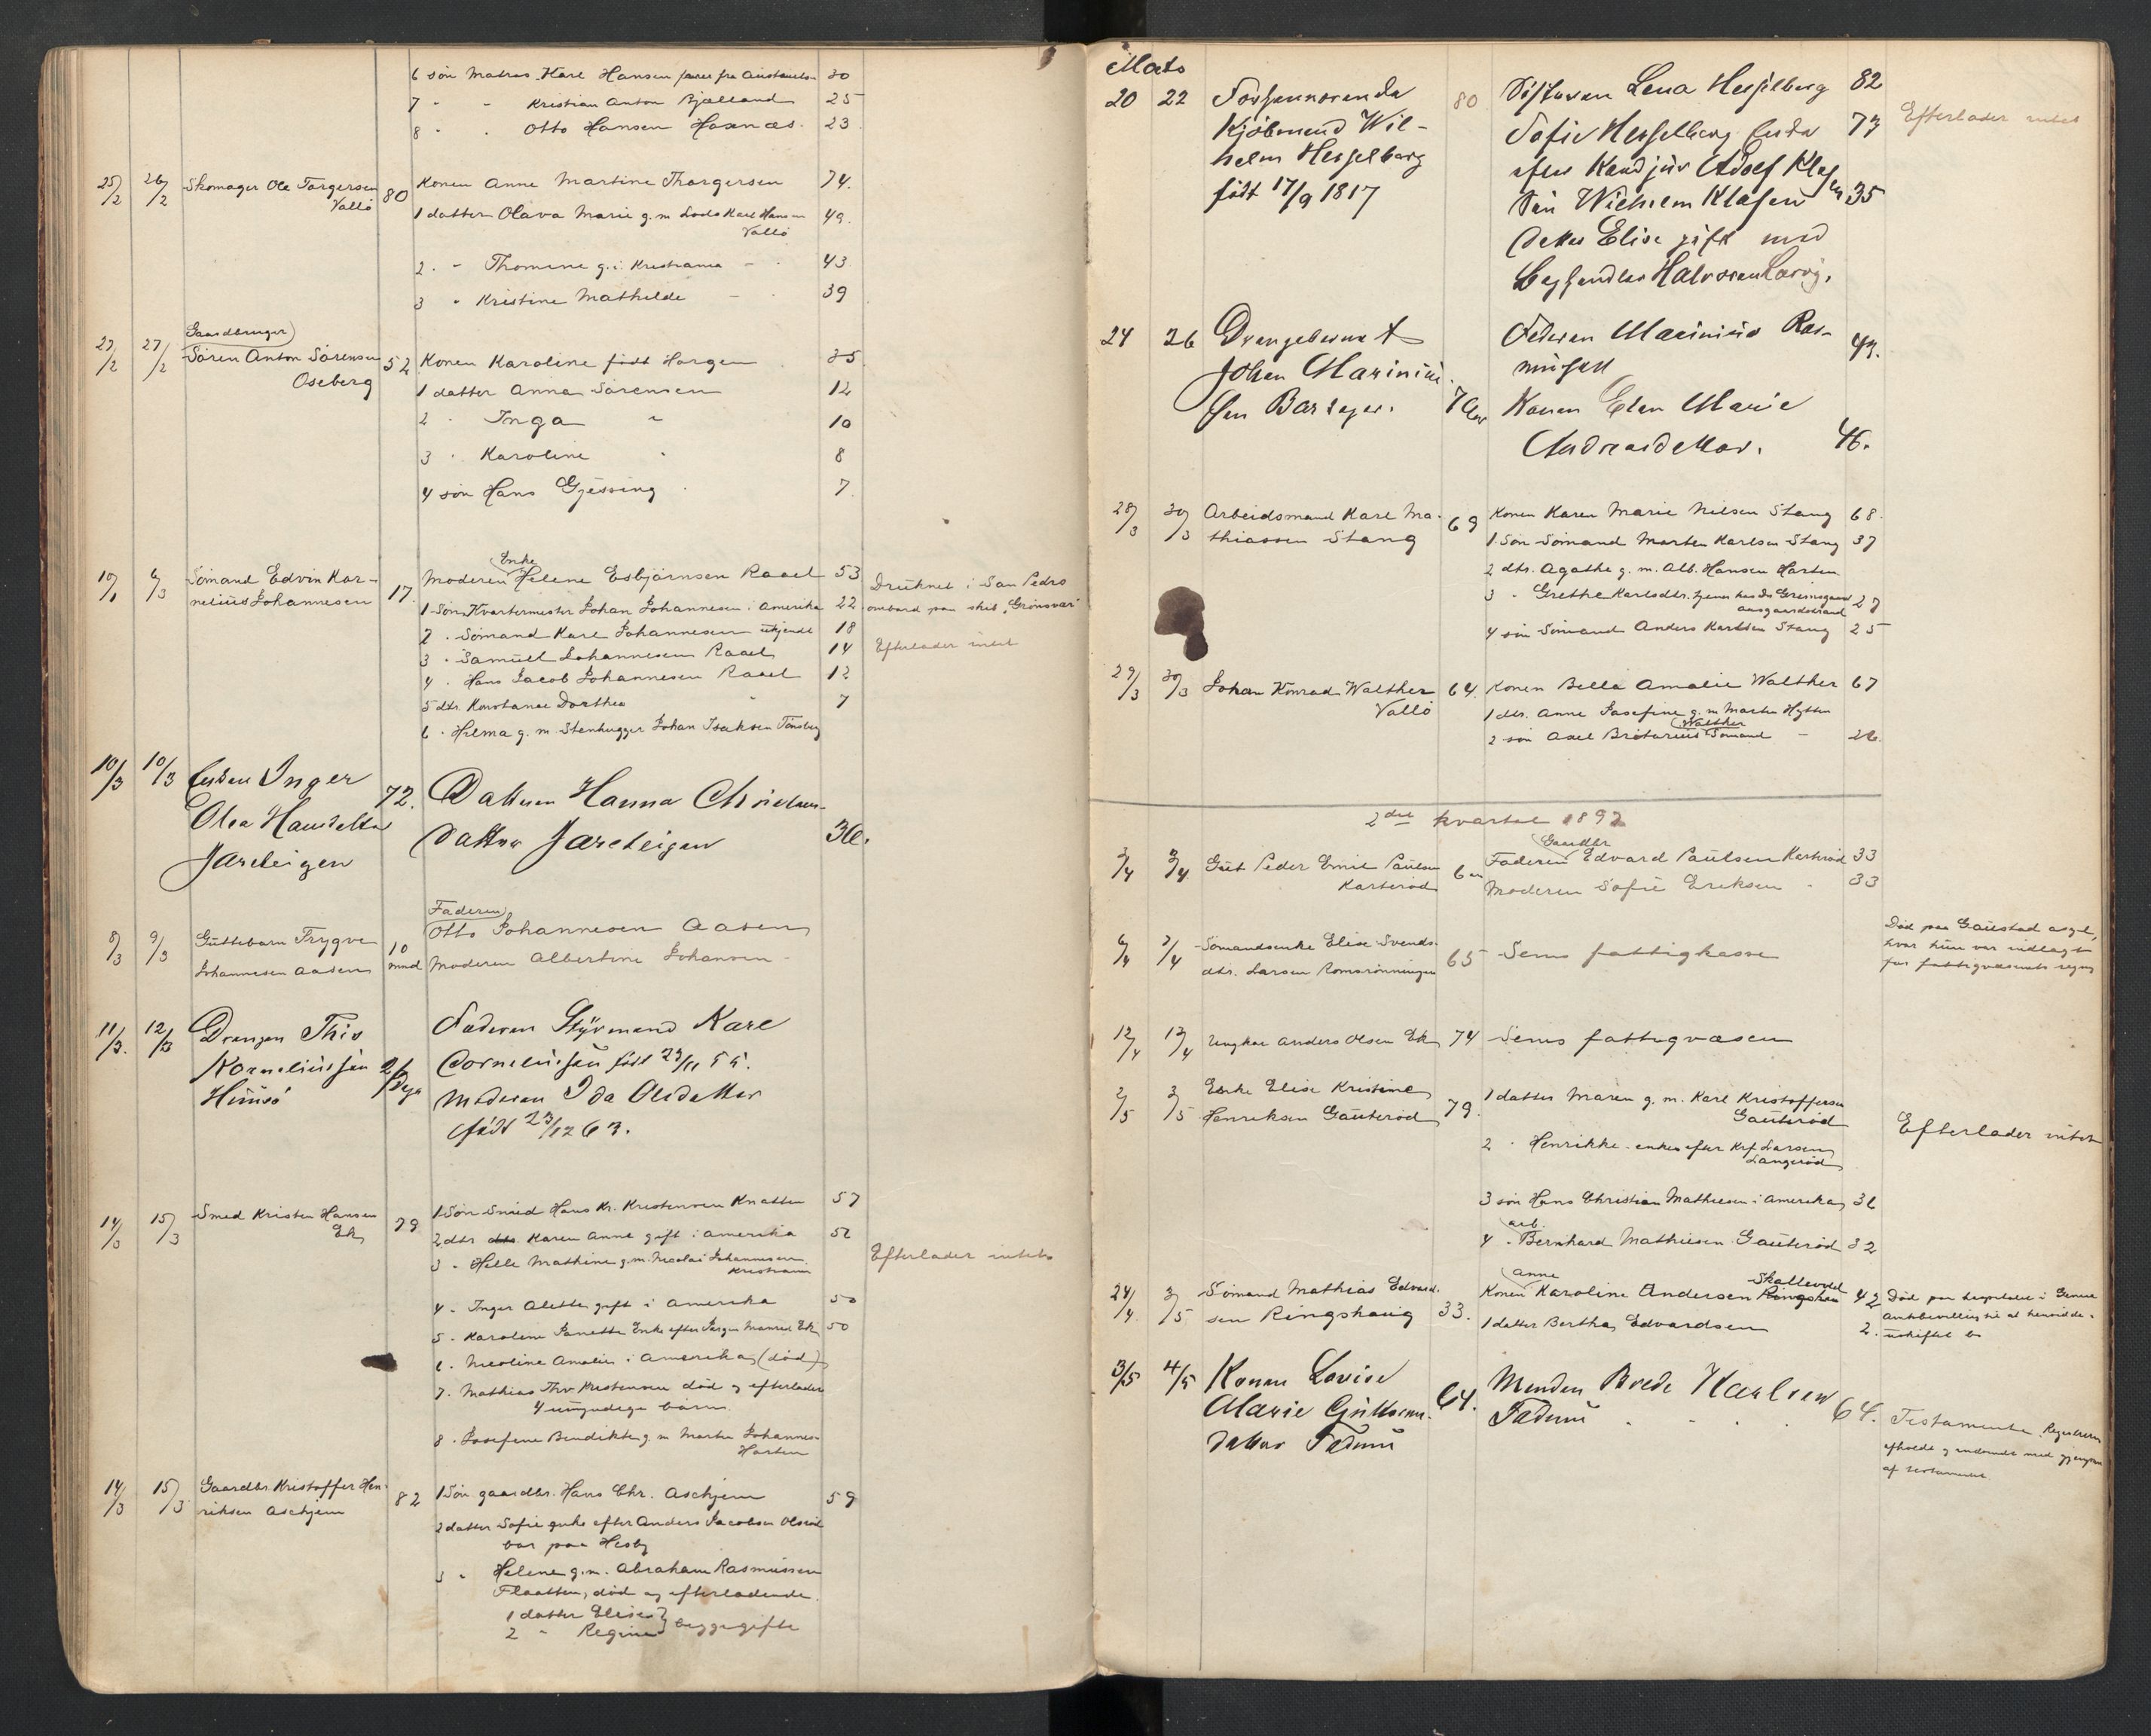 6 søn Matros Karl Hansen 30
7 - - Kristian Anton Bjælland 25
8 - - Otto Hansen Haxnæs. 23
25/2 26/2 Skomager Ole Torgersen 80 Konen Anne Martine Thorgersen 74.
Vallö
1 datter Olava Marie g. m. Lods Karl Hansen 49.
Vallö
2. - Thomine g. i. Kristiania - 43
3 - Kristine Mathilde - 39
Gaardbruger
27/2 27/2 Sören Anton Sörensen 52 Konen Karoline født Horgen 35
Oseberg
1 datter Anna Sørensen 12
2 - Inga - 10
3 - Karoline - 8
4 søn Hans Gjessing 7
Enke
10/1 6/3 Sömand Edvin Kor- 17. Moderen Helene Esbjörnsen Raael 53 Druknet i San Pedro
nelius Johannesen 1 Søn Kvartermester Johan Johannesen i Amerika 22 ombord paa skib "Grönsvær"
2 - Sömand Karl Johannesen 18
3 - Samuel Johannesen Raael 14 Efterlader intet
4 - Hans Jacob Johannesen Raael 12
5 dtr. Konstanse Dorthea " 7
6 - Hilma g. m. Stenhugger Johan Isaksen Tönsberg
10/3 10/3 Enken Inger 72. Datteren Hanna
Olea Hansdatter datter Jarleigen 36.
Jarleigen
Faderen
8/3 9/3 Guttebarn Trygve 10 Otto Johannesen Aasen
Johannesen Aasen mnd Moderen Albertine Johansen -
11/3. 12/3 Drengen Thio Faderen Styrmand Karl
Korneliussen Corneliussen født 23/11 55.
Husö Moderen Ida Olsdatter
født 23/12 63.
14/3 15/3 Smed Kristen Hansen 79 1 Søn Smed Hans Kr. Kristensen Knatten 57
Ek
2 dtr. Karen Anne gift i Amerika 52
3 - Helle Mathine g. m. Nicolai Johannesen Efterlader intet
Kristiania
4 - Inger Alette gift i Amerika 50
5 - Karoline Janette Enke efter Jørgen Ek 50
6 - Nicoline Amalie i Amerika (död)
7. Mathias Thv. Kristensen död og efterlader
4 umyndige børn.
8. Josefine Bendikte g. m. Martin Johannes-
Horten
14/3 15/3 Gaardbr. Kristoffer Hen- 82 1 Søn gaardbr. Hans Chr. Aschjem 59
riksen Aschjem
2 datter Sofie enke efter Anders Jacobsen Olsröd
bor paa Hesby
3 - Helene g. m. Abraham Rasmussen
Flaatten, död og efterladende
1 datter Elise } begge gifte
2 - Regine
Marts
20 22 Forhenværende 80 Søsteren Lena Hesselberg 82
Kjöbmand Wil- Sofie Hesselberg Enke 73 Efterlader intet
helm Hesselberg efter Kand jur Adolf Klas-
født 17/9 1817 Søn Wilhelm Klasen 35
Datter Elise gift med
Halvorsen Larvig.
24 26 Drengebarnet Faderen Marinius Ras- 43.
Johan Marinius- mussen
sen Barkager. Konen Elen Marie
Andreasdatter. 46.
28/3 30/3 Arbeidsmand Karl Ma- 69 Konen Karen Marie Nilsen Stang 68
thiassen Stang 1. Søn Sömand Morten Karlsen Stang 37
2 dtr. Agathe g. m. Alb. Hansen Horten
3 - Grethe Karlsdtr. tjener hos 27
aasgaardstrand
4 søn Sömand Anders Karlsen Stang 25
29/3 30/3 Johan Konrad Walther 64. Konen Bella Amalie Walther 67
Vallö 1 dtr. Anne Josefine g. m. Martin Hytten
Walther
2 søn Axel Sömand - 26.
2det kvartal 1892
Gaardbr
2/4 2/4 Gut Peder Emil Paulsen Faderen Edvard Paulsen Karteröd 33
Karteröd Moderen Sofie Eriksen - 33
6/4 7/4 Sömandsenke Elise Svends- 65 Sems fattigkasse Död paa Gaustad asyl,
dtr. Larsen Romsrönningen hvor hun var indlagt
for fattigvæsnets regn
12/4 13/4 Ungkar Anders Olsen Ek 74 Sems fattigvæsen
2/5 3/5 Enke Elise Kristine 79. 1 datter Maren g. m. Karl Kristoffersen
Henriksen Gauteröd Gauteröd
2 - Henrikke enke efter Krf Larsen Efterlader intet
Langeröd
3 søn Hans Christian Mathiesen i Amerika 36
arb.
4 - Bernhard Mathiesen Gauteröd 32
Anne Skallevold
24/4 3/5 Sömand Mathias Edvard- 33. Konen Karoline Andersen Ringshau 42 Död paa hospitalet i
sen Ringshaug 1 datter Bertha Edvardsen 2. Amtsbevilling til at hensidde i
uskiftet bo
3/5 4/5 Konen Lovise 64. Manden Brede Karlsen 64.
Marie Guttorms- Fadum - - Testamente.
datter Fadum afholdt
af testamentet